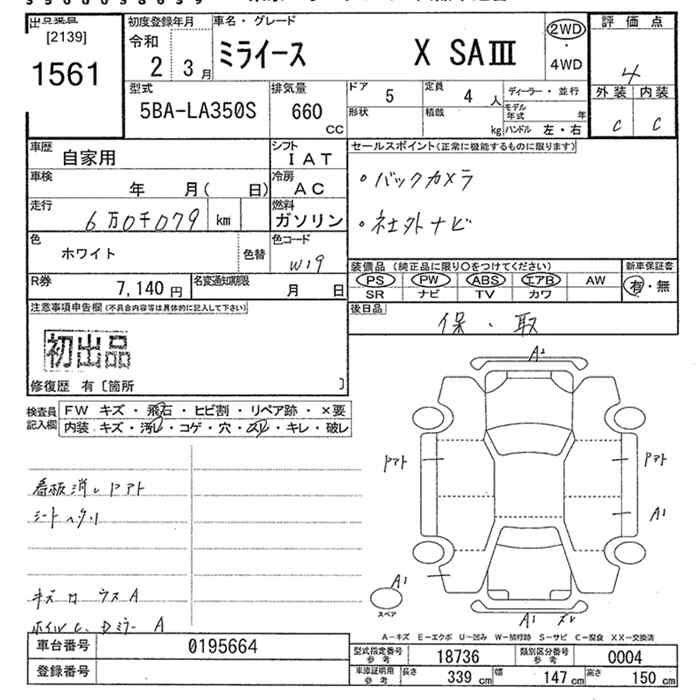 [2139]
1561
初度登録年月
令和
2 3月
車名・グレード
ミライース X SAⅢ
2WD
・
4WD
評価点
4
外装 内装
C C
型式
5BA-LA350S
排気量
660
CC
ドア 5
定員 4 人
形状
積載 kg
ディーラー・並行
モデル年式 年
ハンドル 左・右
車歴 自家用
シフト
I A T
車検 年 月( 日)
冷房
A C
走行 6万0千079 km
燃料
ガソリン
色 ホワイト
色替
色コード
W19
R券 7,140 円
名変通知期限 月 日
セールスポイント(正常に機能するものに限ります)
・バックカメラ
・社外ナビ
装備品 (純正品に限り○をつけてください)
新車保証書
PS PW ABS エアB AW
有・無
SR ナビ TV カワ
後日品
保・取
注意事項申告欄(不具合内容等は具体的に記入して下さい)
初出品
修復歴 有〔箇所 〕
検査員
記入欄
FW キズ・飛石・ヒビ割・リペア跡・×要
内装 キズ・汚レ・コゲ・穴・スレ・キレ・破レ
看板消しドアト
シートヘタリ
キズ ウスA
ホイルC、Dミラー A
A2
ドアト
ドアト
A1
A1
スペア
A1
A-キズ E-エクボ U-凹み W-補修跡 S-サビ C-腐食 XX-交換済
車台番号 0195664
登録番号
型式指定番号
参考
18736
類別区分番号
参考
0004
車添証明用
参考
長さ 339 cm
幅 147 cm
高さ 150 cm